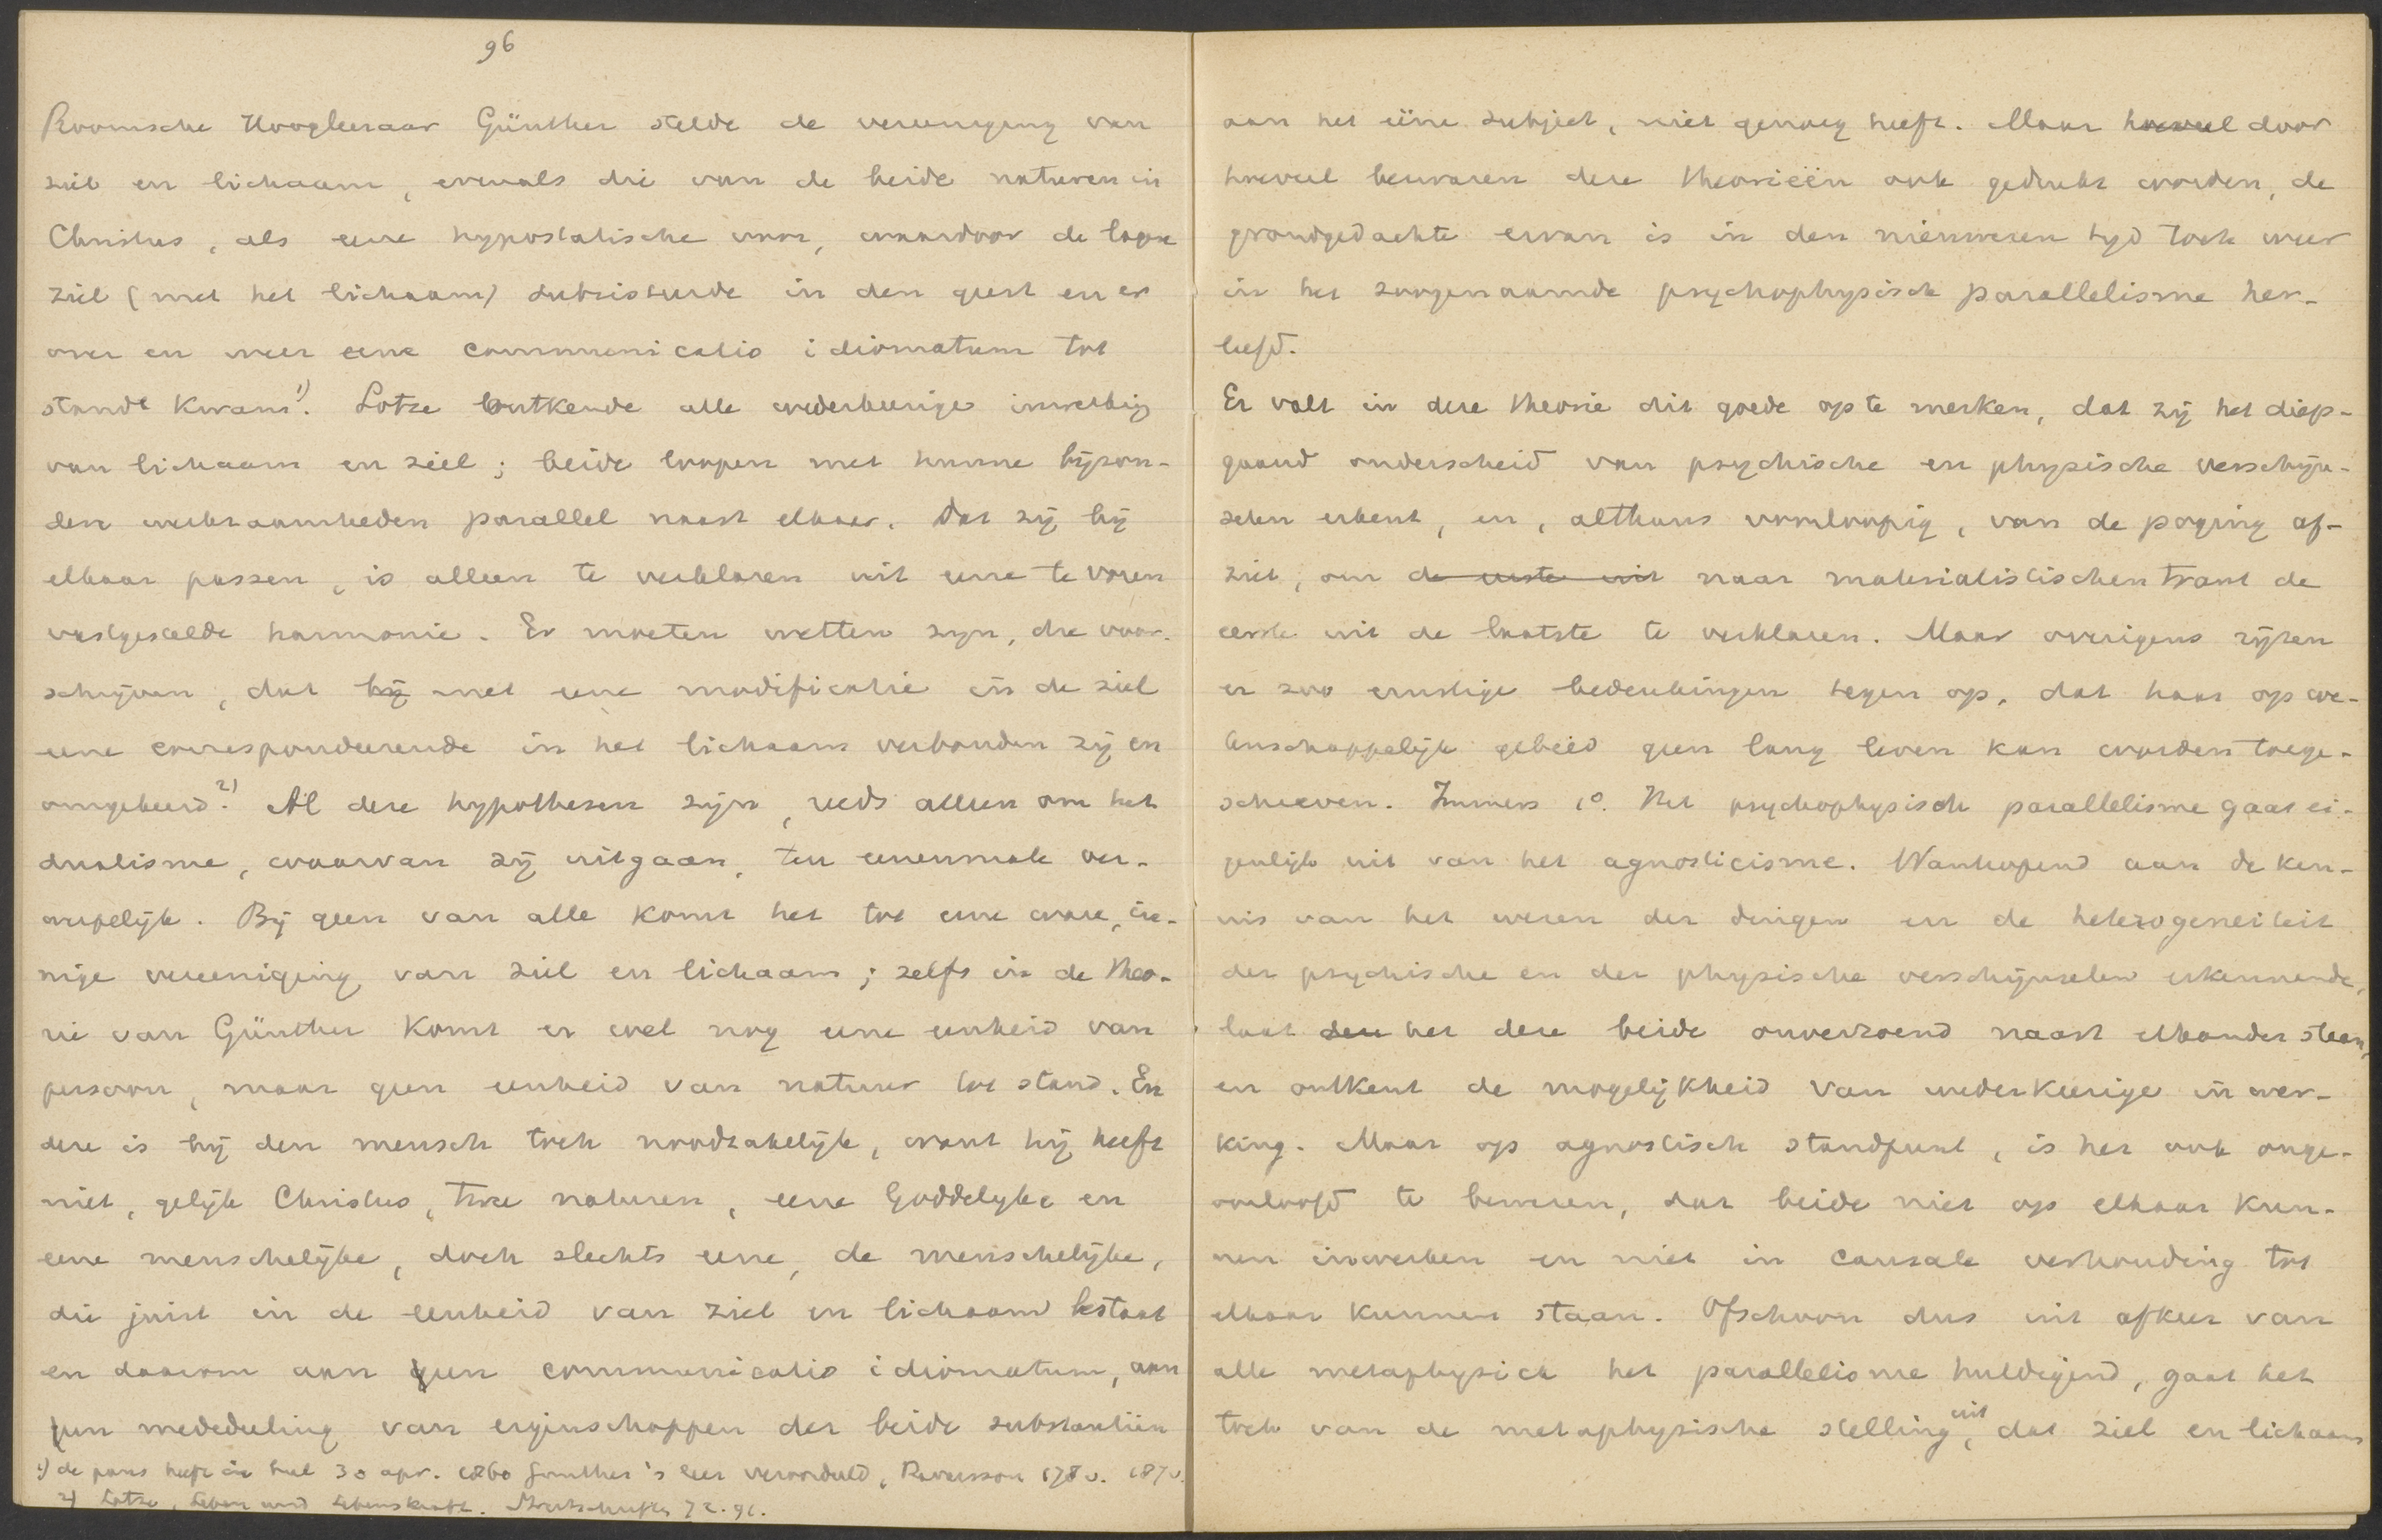 96
Roomsche Hoogleeraar Günther stelde de vereeniging van
ziel en lichaam, evenals die van de beide naturen in
Christus, als eene hypostatische voor, waardoor de lagere
ziel (met het lichaam) subsisteerde in den geest en er
over en weer eene communicatio idiomatum tot
stande kwam 1). Lotze ontkende alle wederkeerige inwerking
van lichaam en ziel; beide loopen met hunne bijzon-
dere werkzaamheden parallel naast elkaar. Dat zij bij
elkaar passen, is alleen te verklaren uit eene te voren
vastgestelde harmonie. Er moeten wetten zijn, die voor-
schrijven, dat bij met eene modificatie in de ziel
eene correspondeerende in het lichaam verbonden zij en
omgekeerd 2). Al deze hypothesen zijn, reeds alleen om het
dualisme, waarvan zij uitgaan, ten eenenmale ver-
werpelijk. Bij geen van alle komt het tot eene ware, in-
nige vereeniging van ziel en lichaam; zelfs in de theo-
rie van Günther komt er wel nog eene eenheid van
persoon, maar geen eenheid van natuur tot stand. En
deze is bij den mensch toch noodzakelijk, want hij heeft
niet, gelijk Christus, twee naturen, eene Goddelijke en
eene menschelijke, doch slechts eene, de menschelijke,
die juist in de eenheid van ziel en lichaam bestaat
en daarom aan geen communicatio idiomatum, aan
geen mededeeling van eigenschappen der beide substantiën
1) de paus heeft in brief 30 apr. 1860 Günther's leer veroordeeld, Ravaisson 178 v. 187 v.
2) Lotze, Leben und Lebenskraft. Streitschriften 72. 91.
aan het ééne subject, niet genoeg heeft. Maar hoeveel door
hoeveel bezwaren deze theorieën ook gedrukt worden, de
grondgedachte ervan is in den nieuweren tijd toch weer
in het zoogenaamde psychophysisch parallelisme her-
leefd.
Er valt in deze theorie dit goede op te merken, dat zij het diep-
gaand onderscheid van psychische en physische verschijn-
selen erkent, en, althans voorloopig, van de poging af-
ziet, om de eerste uit naar materialistischen trant de
eerste uit de laatste te verklaren. Maar overigens rijzen
er zoo ernstige bedenkingen tegen op, dat haar op we-
tenschappelijk gebied geen lang leven kan worden toege-
schreven. Immers 1º. Het psychophysisch parallelisme gaat ei-
genlijk uit van het agnosticisme. Wanhopend aan de ken-
nis van het wezen der dingen en de heterogeneiteit
der psychische en der physische verschijnselen erkennende,
laat het deze beide onverzoend naast elkander staan,
en ontkent de mogelijkheid van wederkeerige inwer-
king. Maar op agnostisch standpunt, is het ook onge-
oorloofd te beweren, dat beide niet op elkaar kun-
nen inwerken en niet in causale verhouding tot
elkaar kunnen staan. Ofschoon dus uit afkeer van
alle metaphysica het parallelisme huldigend, gaat het
toch van de metaphysische stelling uit, dat ziel en lichaam